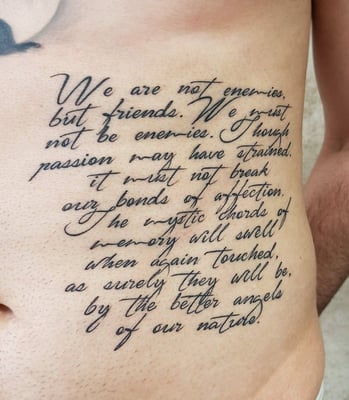 We are not enemies,
but friends. We must
not be enemies. Though
passion may have strained,
it must not break
our bonds of affection.
The mystic chords of
memory will swell
when again touched,
as surely they will be,
by the better angels
of our nature.